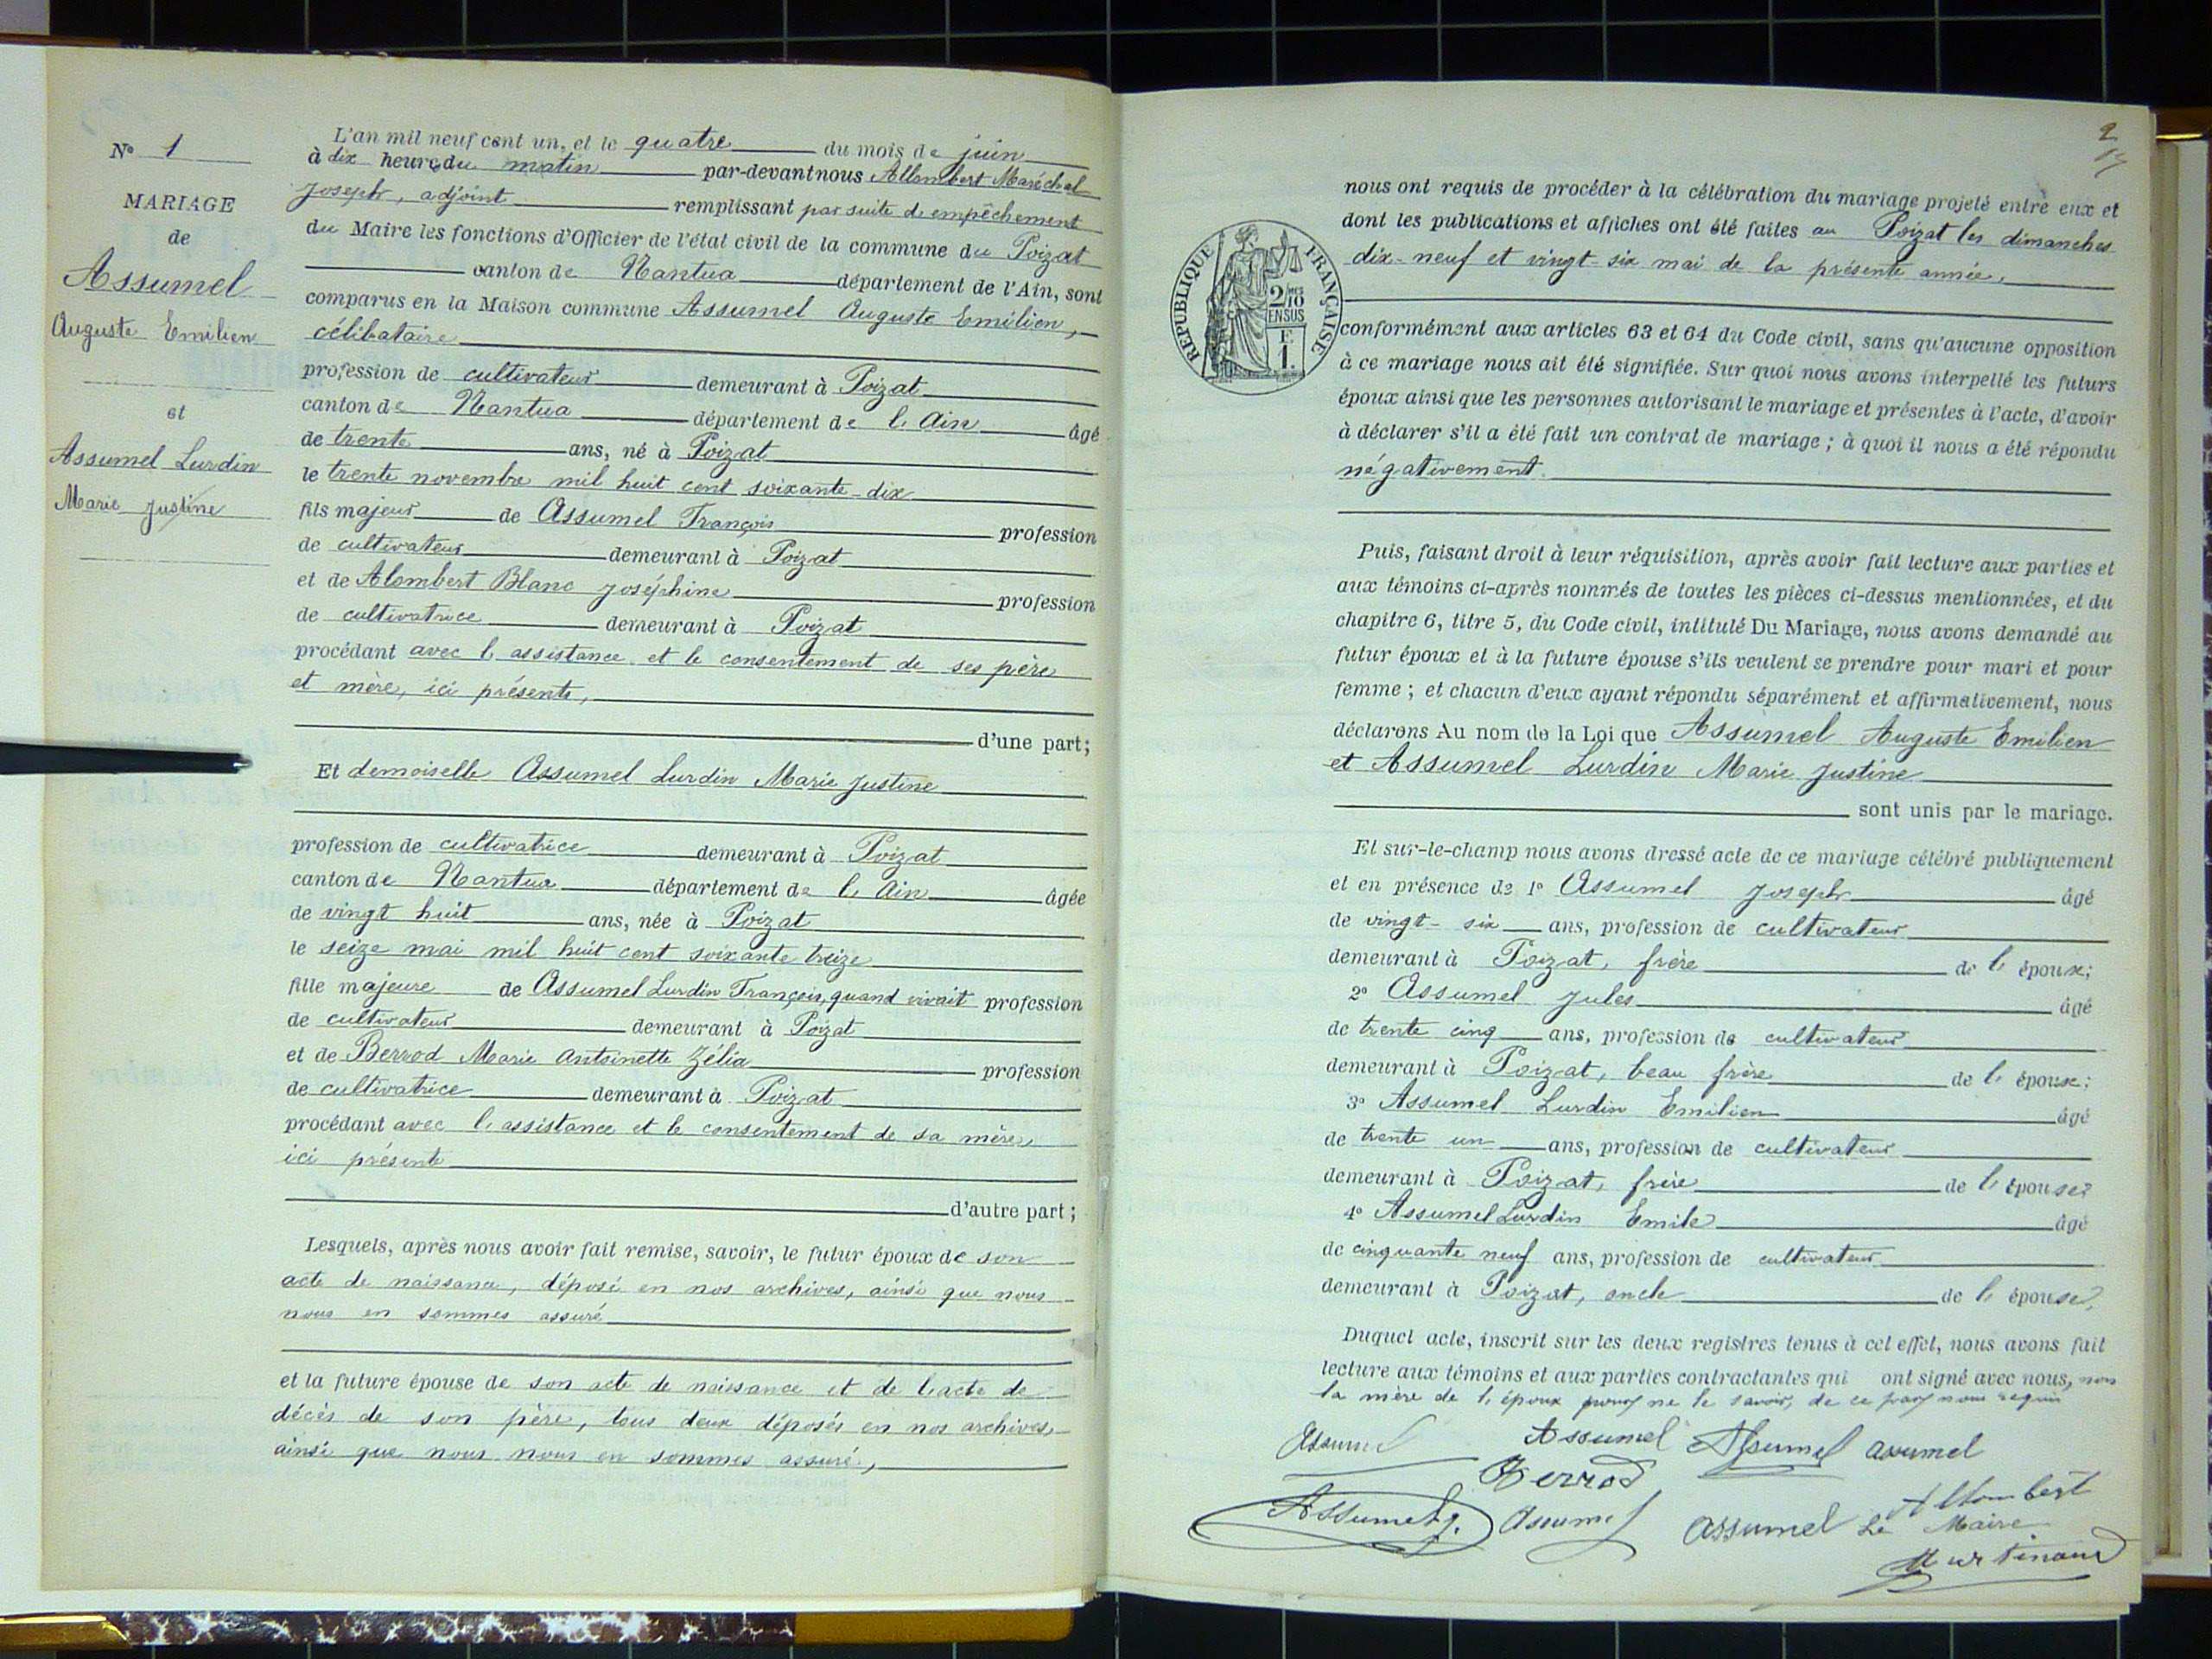 N° 1
MARIAGE
de
Assumel
Auguste Emilien
et
Assumel Lurdin
Marie Justine
L'an mil neuf cent un, et le quatre du mois de juin
à dix heures du matin par-devant nous Allombert Maréchal
Joseph, adjoint remplissant par suite d'empêchement
du Maire les fonctions d'Officier de l'état civil de la commune du Poizat
canton de Nantua département de l'Ain, sont
comparus en la Maison commune Assumel Auguste Emilien,
célibataire
profession de cultivateur demeurant à Poizat
canton de Nantua département de l'Ain âgé
de trente ans, né à Poizat
le trente novembre mil huit cent soixante-dix
fils majeur de Assumel François profession
de cultivateur demeurant à Poizat
et de Alombert Blanc Joséphine profession
de cultivatrice demeurant à Poizat
procédant avec l'assistance et le consentement de ses père
et mère, ici présents,
d'une part;
Et demoiselle Assumel Lurdin Marie Justine
profession de cultivatrice demeurant à Poizat
canton de Nantua département de l'Ain âgée
de vingt huit ans, née à Poizat
le seize mai mil huit cent soixante treize
fille majeure de Assumel Lurdin François, quand vivait profession
de cultivateur demeurant à Poizat
et de Berrod Marie Antoinette Zélia profession
de cultivatrice demeurant à Poizat
procédant avec l'assistance et le consentement de sa mère,
ici présente
d'autre part;
Lesquels, après nous avoir fait remise, savoir, le futur époux de son
acte de naissance, déposé en nos archives, ainsi que nous
nous en sommes assuré
et la future épouse de son acte de naissance et de l'acte de
décès de son père, tous deux déposés en nos archives,
ainsi que nous nous en sommes assuré,
2
nous ont requis de procéder à la célébration du mariage projeté entre eux et
dont les publications et affiches ont été faites au Poizat les dimanches
dix-neuf et vingt-six mai de la présente année,
RÉPUBLIQUE FRANÇAISE
2/10
EN SUS
F
1.
conformément aux articles 63 et 64 du Code civil, sans qu'aucune opposition
à ce mariage nous ait été signifiée. Sur quoi nous avons interpellé les futurs
époux ainsi que les personnes autorisant le mariage et présentes à l'acte, d'avoir
à déclarer s'il a été fait un contrat de mariage ; à quoi il nous a été répondu
négativement.
Puis, faisant droit à leur réquisition, après avoir fait lecture aux parties et
aux témoins ci-après nommés de toutes les pièces ci-dessus mentionnées, et du
chapitre 6, titre 5, du Code civil, intitulé Du Mariage, nous avons demandé au
futur époux et à la future épouse s'ils veulent se prendre pour mari et pour
femme ; et chacun d'eux ayant répondu séparément et affirmativement, nous
déclarons Au nom de la Loi que Assumel Auguste Emilien
et Assumel Lurdin Marie Justine
sont unis par le mariage.
Et sur-le-champ nous avons dressé acte de ce mariage célébré publiquement
et en présence de 1° Assumel Joseph âgé
de vingt-six ans, profession de cultivateur
demeurant à Poizat, frère de l'époux;
2° Assumel Jules âgé
de trente cinq ans, profession de cultivateur
demeurant à Poizat, beau frère de l'épouse;
3° Assumel Lurdin Emilien âgé
de trente un ans, profession de cultivateur
demeurant à Poizat, frère de l'épouse
4° Assumel Lurdin Emile âgé
de cinquante neuf ans, profession de cultivateur
demeurant à Poizat, oncle de l'épouse,
Duquel acte, inscrit sur les deux registres tenus à cet effet, nous avons fait
lecture aux témoins et aux parties contractantes qui ont signé avec nous, non
la mère de l'époux pour ne le savoir, de ce par nous requis
Assumel Assumel Assumel assumel
Berrod
Assumel J. Assumel assumel Allombert
Le Maire
Martinand